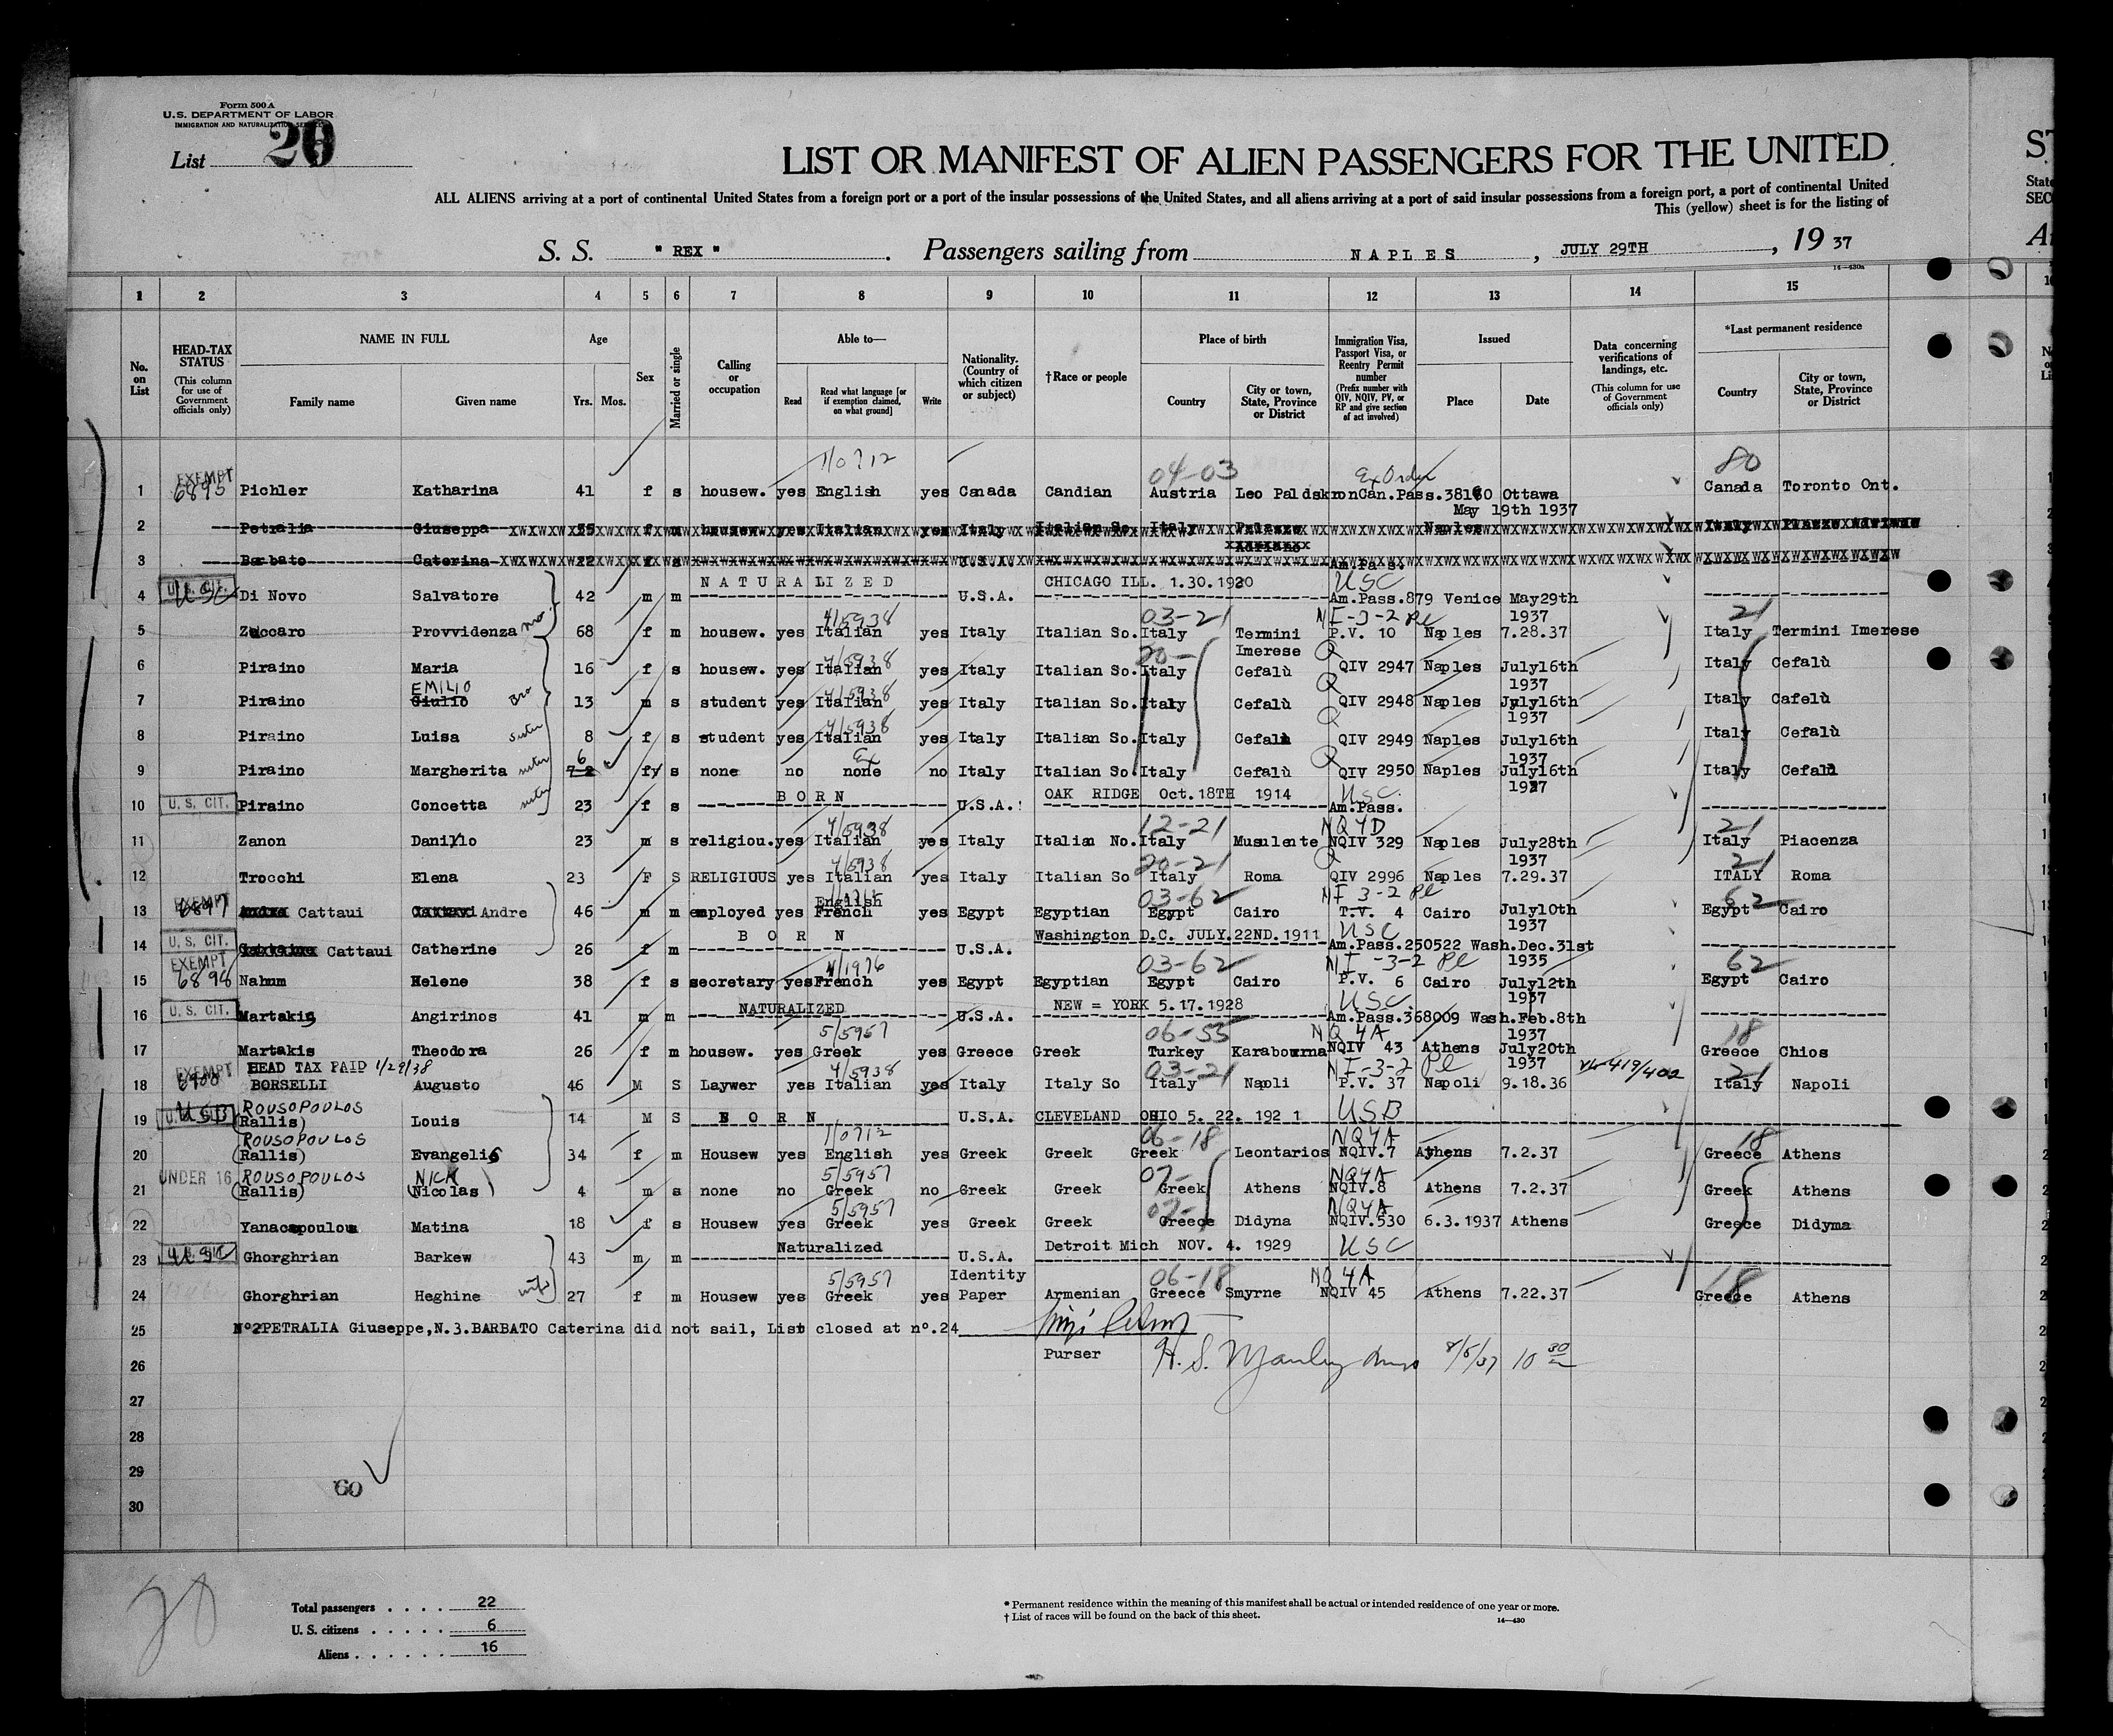 Form 500 A
U.S. DEPARTMENT OF LABOR
IMMIGRATION AND NATURALIZATION SERVICE
List 20
LIST OR MANIFEST OF ALIEN PASSENGERS FOR THE UNITED
ALL ALIENS arriving at a port of continental United States from a foreign port or a port of the insular possessions of the United States, and all aliens arriving at a port of said insular possessions from a foreign port, a port of continental United
This (yellow) sheet is for the listing of
S. S. " REX " . Passengers sailing from NAPLES , JULY 29TH , 19 37
14—430a
1 2 3 4 5 6 7 8 9 10 11 12 13 14 15
No. on List
HEAD-TAX STATUS (This column for use of Government officials only)
NAME IN FULL
Family name Given name
Age
Yrs. Mos.
Sex
Married or single
Calling or occupation
Able to—
Read Read what language [or if exemption claimed, on what ground] Write
Nationality. (Country of which citizen or subject)
†Race or people
Place of birth
Country City or town, State, Province or District
Immigration Visa, Passport Visa, or Reentry Permit number (Prefix number with QIV, NQIV, PV, or RP and give section of act involved)
Issued
Place Date
Data concerning verifications of landings, etc. (This column for use of Government officials only)
*Last permanent residence
Country City or town, State, Province or District
1/0712 04-03 Ex Order 80
1 EXEMPT 6895 Pichler Katharina 41 f s housew. yes English yes Canada Candian Austria Leo Paldskron Can.Pass.38160 Ottawa Canada Toronto Ont.
May 19th 1937
2 Petralia Giuseppa 55 f m housew. yes Italian yes Italy Italian So. Italy Palazzo Naples Italy
Adriano
3 Barbato Caterina 22 f s U.S.A. Am.Pass.
U.S. CIT. NATURALIZED CHICAGO ILL. 1.30.1920 USC
4 Di Novo Salvatore 42 m m U.S.A. Am.Pass.879 Venice May29th
4/5938 03-21 NI-3-2 Pl 1937 21
5 Zuccaro Provvidenza mo. 68 f m housew. yes Italian yes Italy Italian So. Italy Termini P.V. 10 Naples 7.28.37 Italy Termini Imerese
4/5938 20- Imerese Q
6 Piraino Maria 16 f s housew. yes Italian yes Italy Italian So. Italy Cefalù QIV 2947 Naples July16th Italy Cefalù
EMILIO 4/5938 Q 1937
7 Piraino Giulio Bro 13 m s student yes Italian yes Italy Italian So. Italy Cefalù QIV 2948 Naples July16th Italy Cafelù
4/5938 Q 1937
8 Piraino Luisa sister 8 f s student yes Italian yes Italy Italian So. Italy Cefalù QIV 2949 Naples July16th Italy Cefalù
6 Ex Q 1937
9 Piraino Margherita sister f s none no none no Italy Italian So. Italy Cefalù QIV 2950 Naples July16th Italy Cefalù
BORN OAK RIDGE Oct.18TH 1914 USC 1937
10 U. S. CIT. Piraino Concetta sister 23 f s U.S.A. Am.Pass.
4/5938 12-21 NQ4D 21
11 Zanon Danilo 23 m s religiou. yes Italian yes Italy Italian No. Italy Musulente NQIV 329 Naples July28th Italy Piacenza
4/5938 20-21 Q 1937 21
12 Trocchi Elena 23 F S RELIGIOUS yes Italian yes Italy Italian So Italy Roma QIV 2996 Naples 7.29.37 ITALY Roma
English 03-62 NI 3-2 Pl 62
13 EXEMPT 6897 Cattaui Andre 46 m m employed yes French yes Egypt Egyptian Egypt Cairo T.V. 4 Cairo July10th Egypt Cairo
BORN Washington D.C. JULY.22ND.1911 USC 1937
14 U. S. CIT. Cattaui Catherine 26 f m U.S.A. Am.Pass.250522 Wash.Dec.31st
4/1976 03-62 NI-3-2 Pl 1935 62
15 EXEMPT 6898 Nahum Helene 38 f s secretary yes French yes Egypt Egyptian Egypt Cairo P.V. 6 Cairo July12th Egypt Cairo
NATURALIZED NEW = YORK 5.17.1928 USC. 1937
16 U. S. CIT. Martakis Angirinos 41 m m U.S.A. Am.Pass.368009 Wash.Feb.8th
5/5957 06-55 NQ 4A 1937 18
17 Martakis Theodora 26 f m housew. yes Greek yes Greece Greek Turkey Karabourna NQIV 43 Athens July20th Greece Chios
HEAD TAX PAID 1/29/38 4/5938 03-21 NI-3-2 Pl 1937 21
18 EXEMPT 6900 BORSELLI Augusto 46 M S Laywer yes Italian yes Italy Italy So Italy Napoli P.V. 37 Napoli 9.18.36 419/402 Italy Napoli
ROUSOPOULOS
19 U.S. CIT. USB (Rallis) Louis 14 M S BORN U.S.A. CLEVELAND OHIO 5. 22. 192 1 USB
ROUSOPOULOS 1/0712 06-18 NQ4A 18
20 (Rallis) Evangelis 34 f m Housew yes English yes Greek Greek Greek Leontarios NQIV.7 Athens 7.2.37 Greece Athens
ROUSOPOULOS NICK 5/5957 07- NQ4A
21 UNDER 16 (Rallis) (Nicolas) 4 m s none no Greek no Greek Greek Greek Athens NQIV.8 Athens 7.2.37 Greek Athens
5/5957 07- NQ4A
22 Yanacopoulou Matina 18 f s Housew yes Greek yes Greek Greek Greece Didyna NQIV.530 6.3.1937 Athens Greece Didyma
Naturalized Detroit Mich NOV. 4. 1929 USC
23 Ghorghrian Barkew 43 m m U.S.A.
5/5957 Identity 06-18 NQ 4A 18
24 Ghorghrian Heghine wife 27 f m Housew yes Greek yes Paper Armenian Greece Smyrne NQIV 45 Athens 7.22.37 Greece Athens
25 N°2PETRALIA Giuseppe,N.3.BARBATO Caterina did not sail, List closed at n°.24
Purser H. S. Manley 8/5/37 10 30
26
27
28
29
60
30
20
Total passengers . . . . 22
U. S. citizens . . . . . 6
Aliens . . . . . . 16
* Permanent residence within the meaning of this manifest shall be actual or intended residence of one year or more.
† List of races will be found on the back of this sheet.
14—430